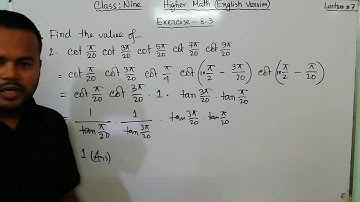 Class: Nine Higher Math (English Version) Lecture #7
Exercise - 8.3
Find the value of_
2. cot π/20 cot 3π/20 cot 5π/20 cot 7π/20 cot 9π/20
= cot π/20 cot 3π/20 cot π/4 cot (π/2 − 3π/20) cot (π/2 − π/20)
= cot π/20 cot 3π/20 · 1 · tan 3π/20 · tan π/20
= 1/tan π/20 · 1/tan 3π/20 · tan 3π/20 · tan π/20
1 (Ans)